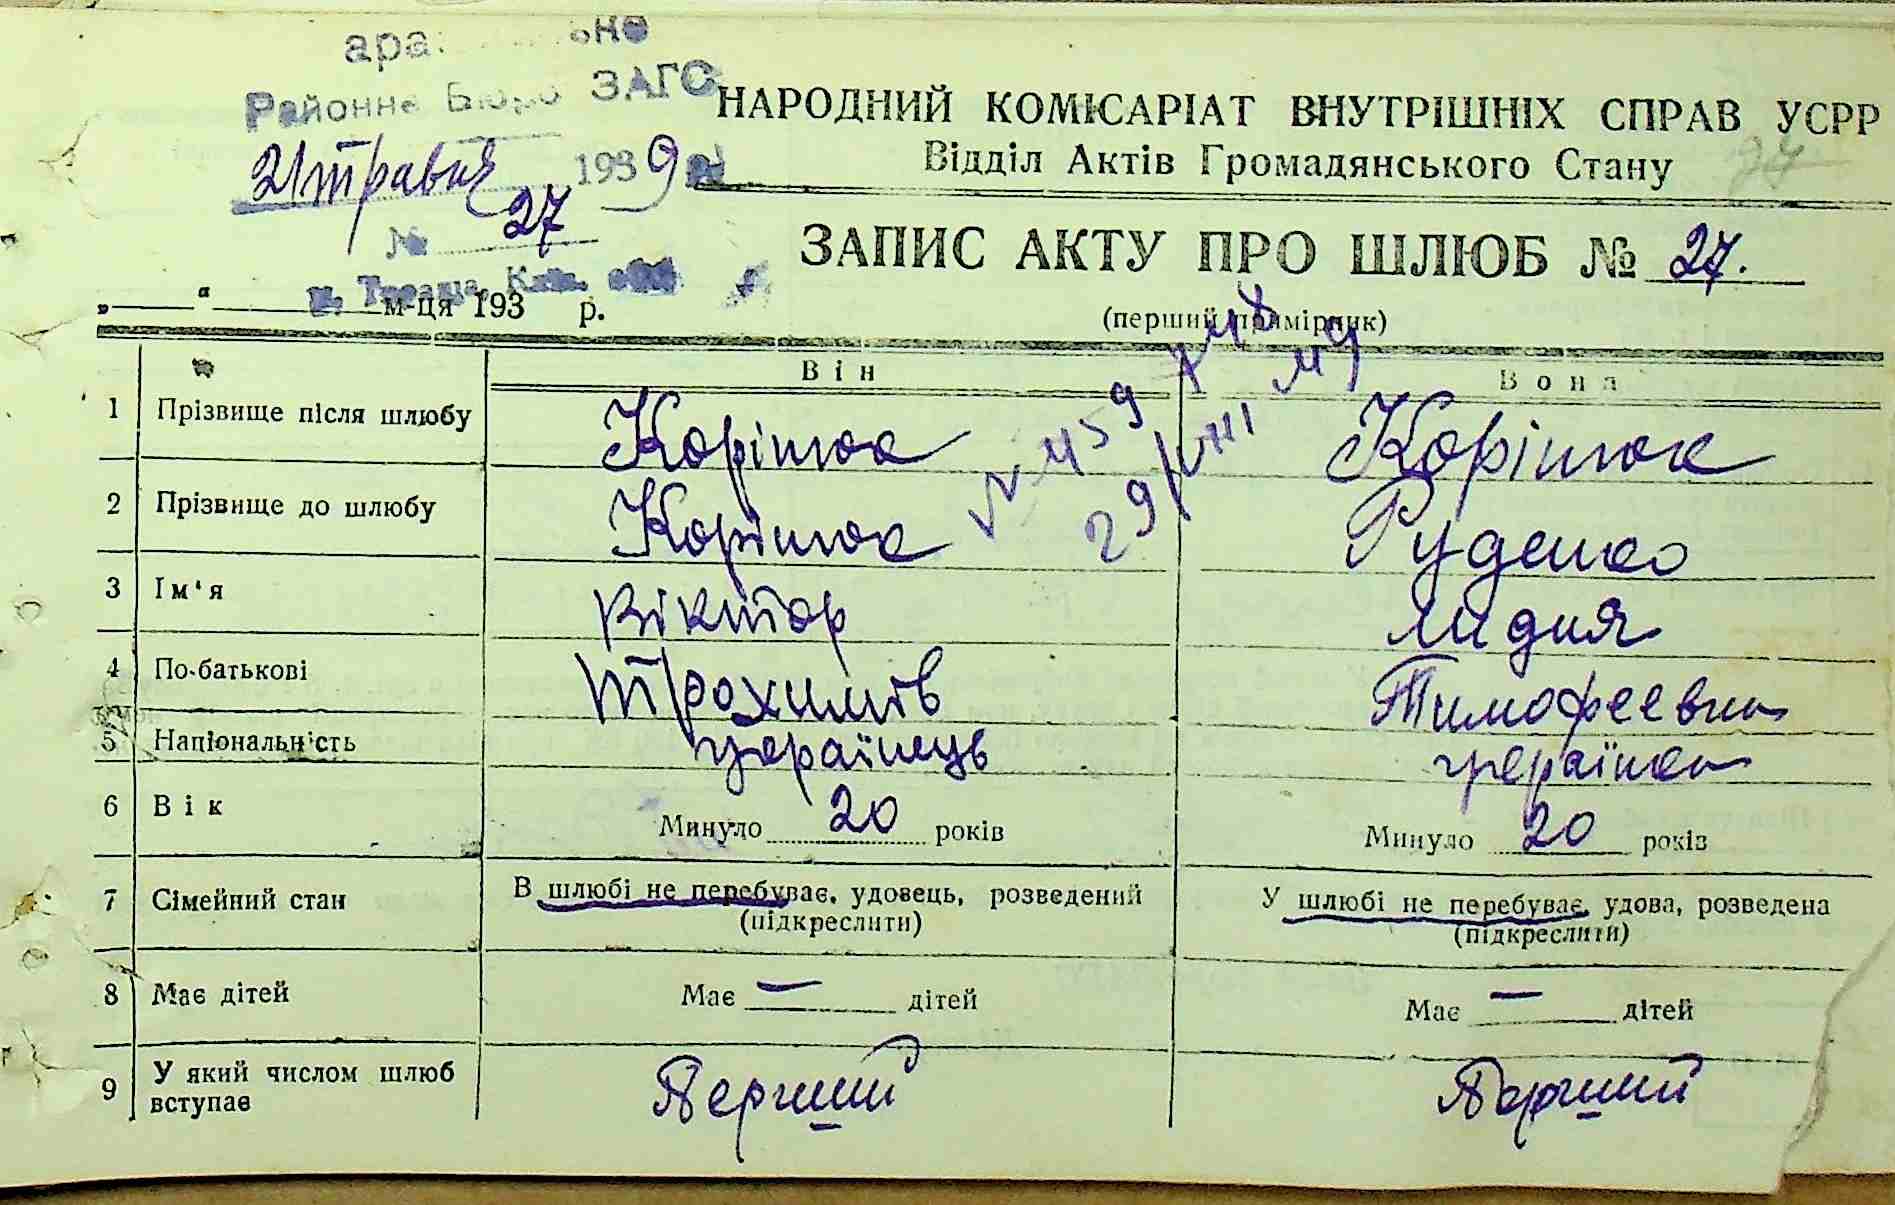 Районне Бюро ЗАГС
21 травня 1939 р.
№ 27
НАРОДНИЙ КОМІСАРІАТ ВНУТРІШНІХ СПРАВ УСРР
Відділ Актів Громадянського Стану
27
ЗАПИС АКТУ ПРО ШЛЮБ № 27.
(перший примірник)
„ “ м-ця 193 р.
Він Вона
1 Прізвище після шлюбу Корінюк Корінюк
2 Прізвище до шлюбу Корінюк Руденко
3 Ім'я Віктор Лидия
4 По-батькові Трохимів Тимофеевна
5 Національність українець українка
6 Вік Минуло 20 років Минуло 20 років
7 Сімейний стан В шлюбі не перебуває, удовець, розведений У шлюбі не перебуває, удова, розведена
(підкреслити) (підкреслити)
8 Має дітей Має — дітей Має — дітей
9 У який числом шлюб вступає Перший Перший